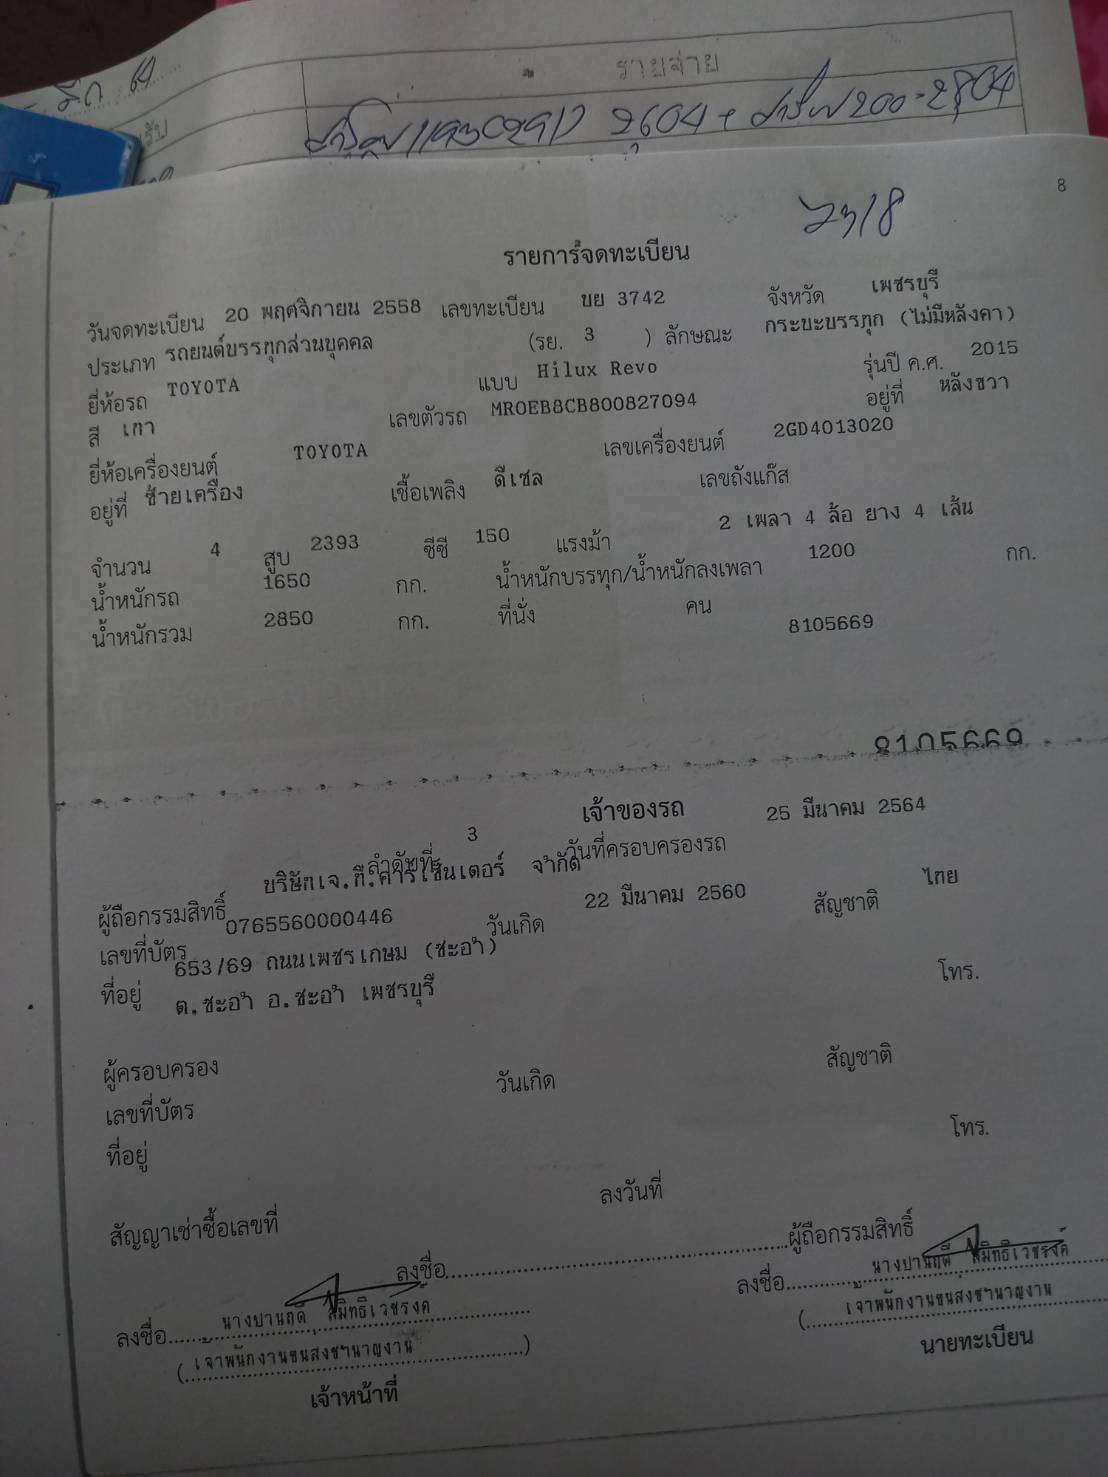 รายจ่าย
2604 + 200 - 2804
8
รายการจดทะเบียน
วันจดทะเบียน 20 พฤศจิกายน 2558 เลขทะเบียน บย 3742 จังหวัด เพชรบุรี
ประเภท รถยนต์บรรทุกส่วนบุคคล (รย. 3 ) ลักษณะ กระบะบรรทุก (ไม่มีหลังคา)
ยี่ห้อรถ TOYOTA แบบ Hilux Revo รุ่นปี ค.ศ. 2015
สี เทา เลขตัวรถ MR0EB8CB800827094 อยู่ที่ หลังขวา
ยี่ห้อเครื่องยนต์ TOYOTA เลขเครื่องยนต์ 2GD4013020
อยู่ที่ ซ้ายเครื่อง เชื้อเพลิง ดีเซล เลขถังแก๊ส
จำนวน 4 สูบ 2393 ซีซี 150 แรงม้า 2 เพลา 4 ล้อ ยาง 4 เส้น
น้ำหนักรถ 1650 กก. น้ำหนักบรรทุก/น้ำหนักลงเพลา 1200 กก.
น้ำหนักรวม 2850 กก. ที่นั่ง คน
8105669
8105669
เจ้าของรถ
ลำดับที่ 3 วันที่ครอบครองรถ 25 มีนาคม 2564
ผู้ถือกรรมสิทธิ์ บริษัทเจ.ที.คาร์เซ็นเตอร์ จำกัด
เลขที่บัตร 0765560000446 วันเกิด 22 มีนาคม 2560 สัญชาติ ไทย
ที่อยู่ 653/69 ถนนเพชรเกษม (ชะอำ)
ต.ชะอำ อ.ชะอำ เพชรบุรี โทร.
ผู้ครอบครอง
เลขที่บัตร วันเกิด สัญชาติ
ที่อยู่ โทร.
สัญญาเช่าซื้อเลขที่ ลงวันที่
ลงชื่อ ผู้ถือกรรมสิทธิ์
ลงชื่อ นางปานฤดี สมิทธิเวชรงค์ ลงชื่อ นางปานฤดี สมิทธิเวชรงค์
(เจ้าพนักงานขนส่งชำนาญงาน) (เจ้าพนักงานขนส่งชำนาญงาน
เจ้าหน้าที่ นายทะเบียน